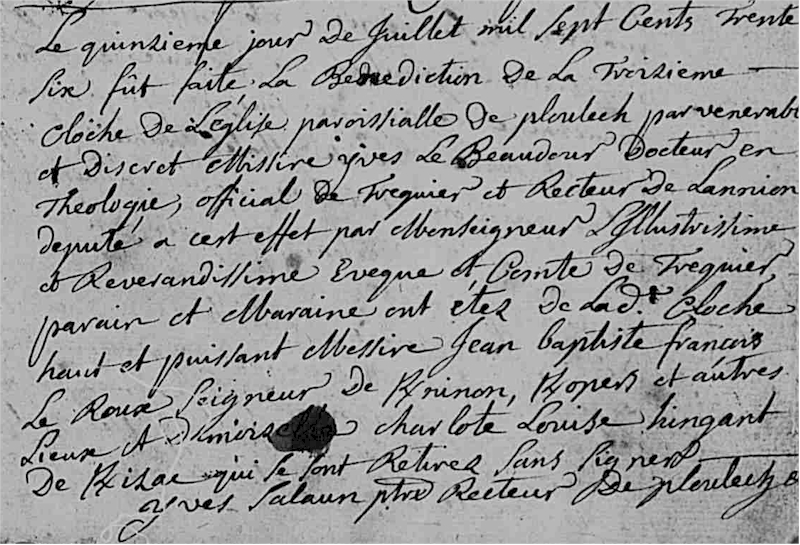 Le quinzieme jour De Juillet mil sept Cents Trente
six fût faite La Benediction De La Troizieme
cloche De L'eglise paroissialle de ploulech par venerable
et Discret Missire yves Le Beaudour Docteur en
Theologie, official De Treguier et Recteur De Lannion
deputé a cert effet par Monseigneur L'Illustrissime
et Reverandissime Eveque et Comte De Treguier,
parain et Maraine ont etez De Lad.e Cloche
haut et puissant Messire Jean baptiste francois
Le Roux Seigneur De Kninon, Kopers et autres
Lieux et Dmoizelle charlote Louise hingant
De Kizac qui se sont Retirez sans signer
yves Salaun ptre Recteur De ploulech